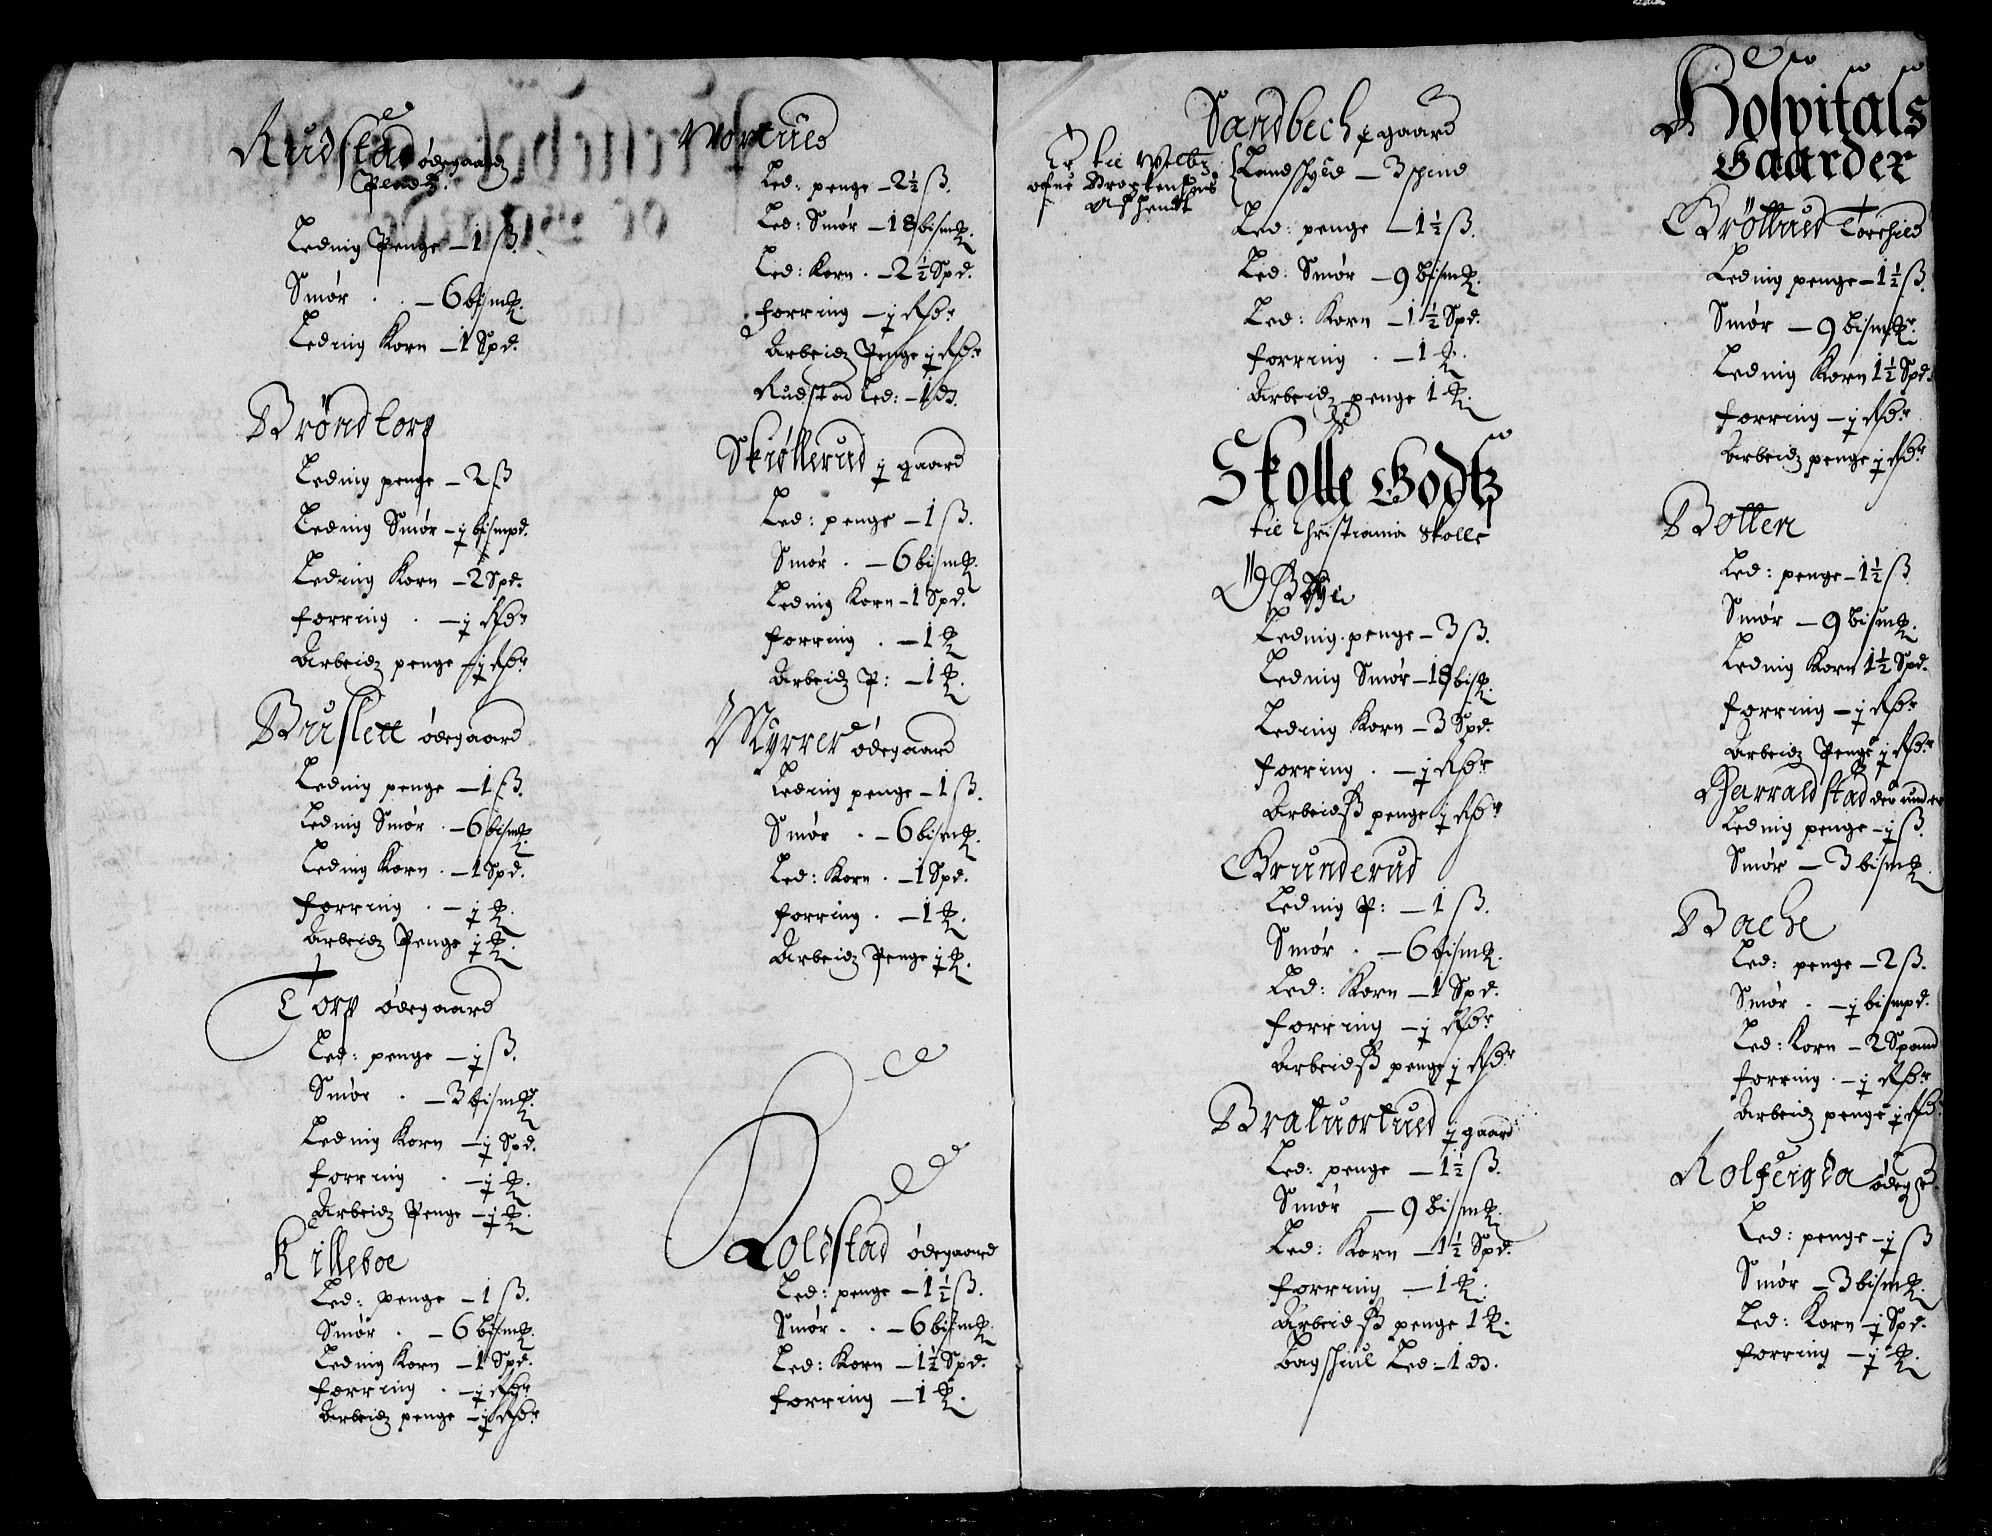 Rudstad ødegaard
Pladtz.
Leding Penge – 1 ß.
Smør . . – 6 bismk.
Leding Korn – 1 Spd.
Brøndtorp
Leding penge – 2 ß
Leding Smør – j bismpd.
Leding Korn – 2 Spd.
forring . – j Rdr
Arbeidz penge – j Rdr
Bruslett ødegaard
Leding penge – 1 ß.
Leding Smør . – 6 bismk.
Leding Korn . – 1 Spd.
forring . – j k.
Arbeidz Penge j k.
Torp ødegaard
Led: penge – j ß.
Smør . – 3 bismk.
Leding Korn – j Spd.
forring . – j k.
Arbeidz Penge – j k.
Killeboe
Led: penge – 1 ß.
Smør . – 6 bismk.
Leding Korn – 1 Spd.
forring . – j Rdr
Arbeidz penge – j Rdr
Led: penge – 2½ ß.
Led: Smør – 18 bismk.
Led: Korn . – 2½ Spd.
forring – j Rdr
Arbeidz Penge j Rdr
Rudstad Led: – 1 ds.
Skiøllerud j gaard
Led: penge – 1 ß.
Smør . – 6 bismk.
Leding Korn – 1 Spd.
forring . – 1 k
Arbeidz P: – 1 k.
Myrrer ødegaard
Leding penge – 1 ß.
Smør . – 6 bismk.
Led: Korn . – 1 Spd.
forring . – 1 k.
Arbeidz Penge j k.
Roldstad ødegaard
Led: penge – 1½ ß.
Smør . . – 6 bismk.
Led: Korn – 1½ Spd.
forring – 1 k.
Sandbech j gaard
Er til Welb:
Landskyld – 3 spind
Led: penge – 1½ ß.
Led: Smør – 9 bismk.
Led: Korn – 1½ Spd.
forring . – 1 k.
Arbeidz penge 1 k.
Skolle Godtz
til Christiania Skolle
Leding penge – 3 ß.
Leding Smør – 18 bismk.
Leding Korn – 3 Spd.
forring . – j Rdr
Arbeidß penge j Rdr
Grunderud
Leding P: – 1 ß.
Smør . – 6 bismk.
Led: Korn – 1 Spd.
forring – j Rdr
Arbeidß penge j Rdr
Bratuortued j gaard
Led: penge – 1½ ß.
Smør – 9 bismk.
Led: Korn – 1½ Spd.
forring – 1 k.
Arbeidß penge 1 k.
Led – 1 ds.
Hospitals
Gaarder
Leding penge – 1½ ß.
Smør – 9 bismkr.
Leding Korn 1½ Spd.
forring – j Rdr
Arbeidz penge j Rdr
Botten
Led: penge – 1½ ß
Smør – 9 bismk.
Leding Korn 1½ Spd.
forring – j Rdr
Arbeidz Penge j Rdr
Harraldstad der under
Leding penge – j ß.
Smør – 3 bismk.
Bache
Led: penge – 2 ß.
Smør . – j bismpd.
Led: Korn – 2 Spand
forring . – j Rdr
Arbeidz penge j Rdr
Led: penge – j ß
Smør – 3 bismk.
Led: Korn – j Spd.
forring – j k.